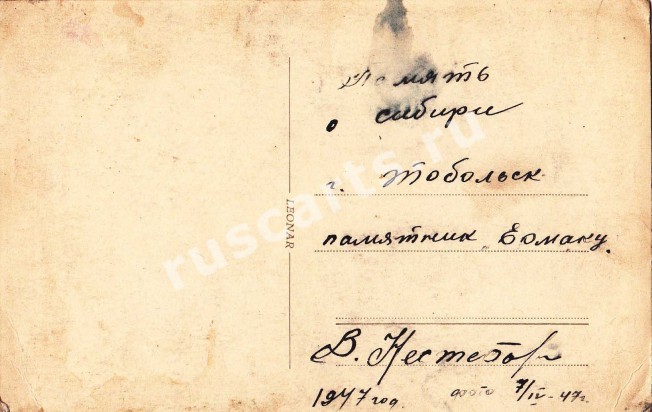 Память
о сибири
г. тобольск
памятник Ермаку.
В. Нестеров
1947 год. фото 7/IV-47г
LEONAR
ruscarts.ru